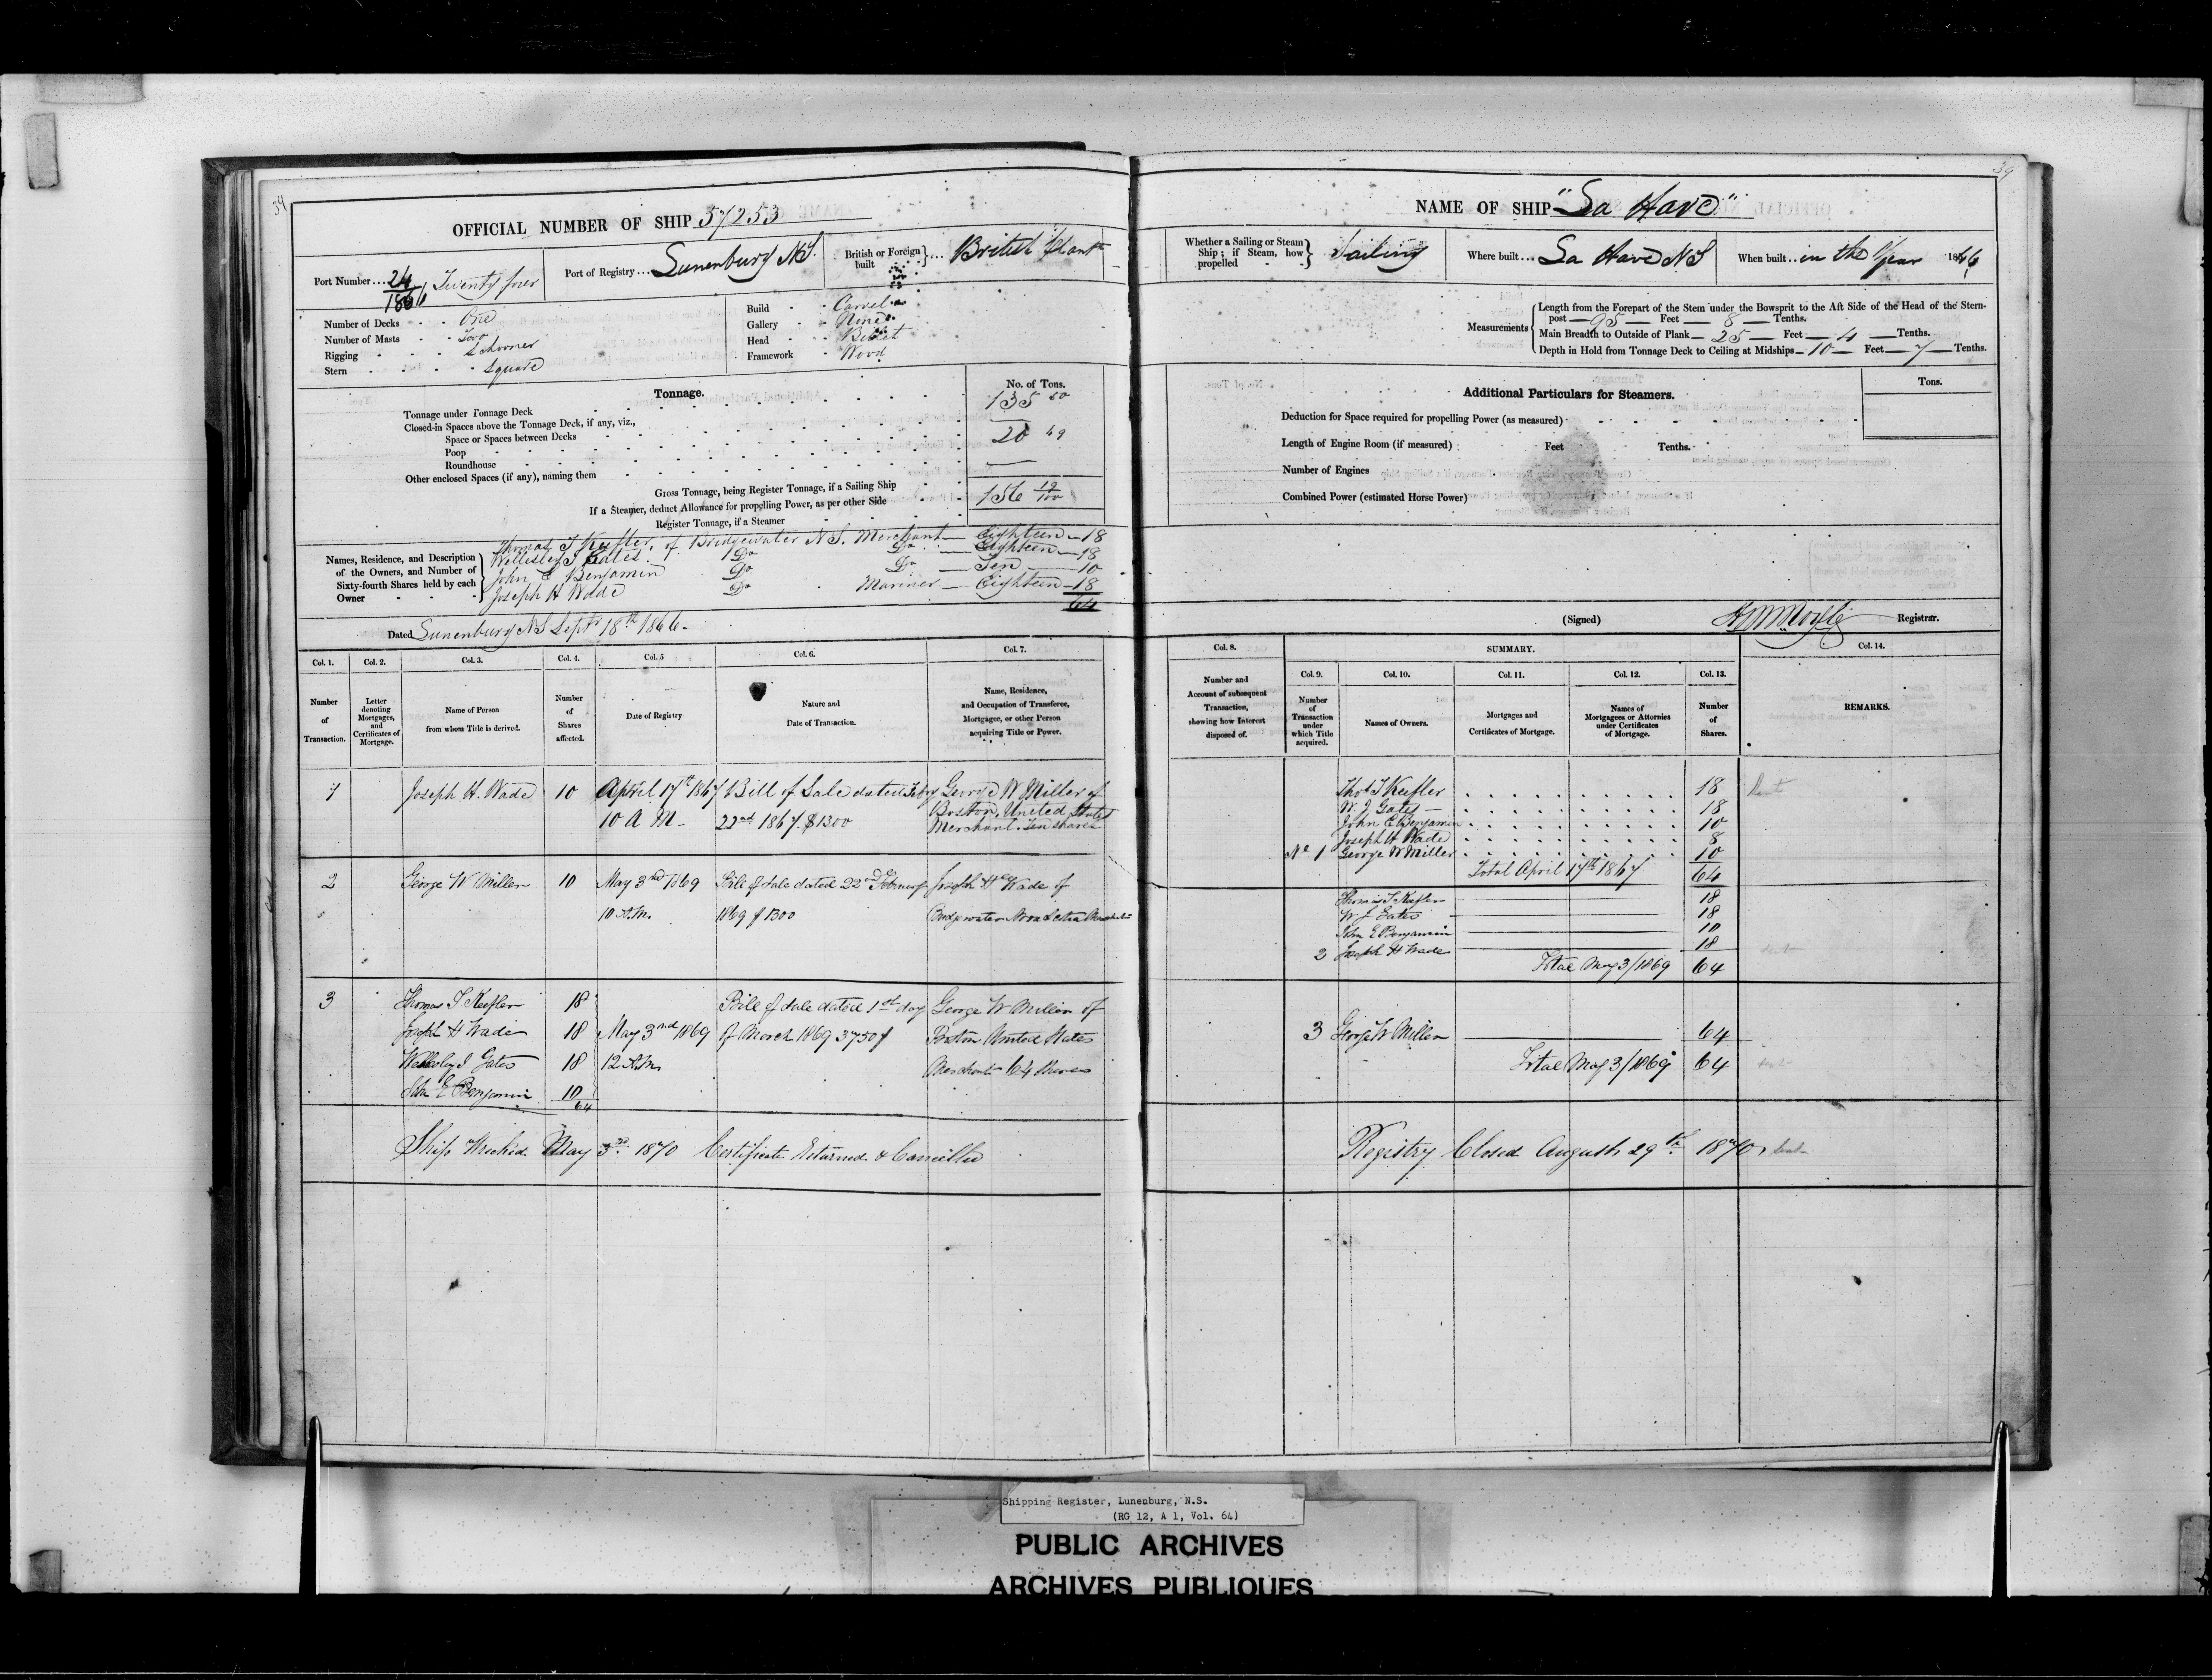 39
OFFICIAL NUMBER OF SHIP 57253
Port Number ... 24/1866 Twenty four
Port of Registry ... Lunenburg N.S.
British or Foreign built } ... British
Number of Decks One
Number of Masts Two
Rigging Schooner
Stern Square
Build Carvel
Gallery None
Head Billet
Framework Wood
Tonnage. No. of Tons.
Tonnage under Tonnage Deck 135 50
Closed-in Spaces above the Tonnage Deck, if any, viz.,
Space or Spaces between Decks
Poop 20 69
Roundhouse
Other enclosed Spaces (if any), naming them —
Gross Tonnage, being Register Tonnage, if a Sailing Ship 156 19/100
If a Steamer, deduct Allowance for propelling Power, as per other Side
Register Tonnage, if a Steamer
Names, Residence, and Description of the Owners, and Number of Sixty-fourth Shares held by each Owner
Thomas T Keefler, of Bridgewater N.S. Merchant — Eighteen — 18
Wellesley J Gates Do Do — Eighteen — 18
John E Benjamin Do Do — Ten — 10
Joseph H Wade Do Mariner — Eighteen — 18
64
Dated Lunenburg N.S. Septr 18th 1866.
Col. 1. Col. 2. Col. 3. Col. 4. Col. 5 Col. 6. Col. 7.
Number of Transaction.
Letter denoting Mortgages, and Certificates of Mortgage.
Name of Person from whom Title is derived.
Number of Shares affected.
Date of Registry
Nature and Date of Transaction.
Name, Residence, and Occupation of Transferee, Mortgagee, or other Person acquiring Title or Power.
1 Joseph H. Wade 10 April 17th 1867 Bill of Sale dated Febry George W Miller of
10 A M — 22nd 1867. $1300 Boston, United States
Merchant. Ten shares
2 George W Miller 10 May 3rd 1869 Bill of Sale dated 22nd February Joseph H Wade of
10 A.M. 1869 $1300 Bridgewater Nova Scotia
3 Thomas T Keefler 18 Bill of Sale dated 1st day George W Miller of
Joseph H Wade 18 May 3rd 1869 of March 1869 3750$ Boston United States
Wellesley J Gates 18 12 A.M. Merchant 64 Shares
John E Benjamin 10
64
Ship Wrecked May 3rd 1870 Certificate Returned & Cancelled
39
NAME OF SHIP "La Have"
Whether a Sailing or Steam Ship; if Steam, how propelled } Sailing
Where built ... La Have N S
When built ... in the Year 1866
Measurements
Length from the Forepart of the Stem under the Bowsprit to the Aft Side of the Head of the Stern-
post — 95 — Feet — 8 — Tenths.
Main Breadth to Outside of Plank — 25 — Feet — 4 — Tenths.
Depth in Hold from Tonnage Deck to Ceiling at Midships — 10 — Feet — 7 — Tenths.
Additional Particulars for Steamers. Tons.
Deduction for Space required for propelling Power (as measured)
Length of Engine Room (if measured) Feet Tenths.
Number of Engines
Combined Power (estimated Horse Power)
(Signed) Registrar.
Col. 8. SUMMARY. Col. 14.
Col. 9. Col. 10. Col. 11. Col. 12. Col. 13.
Number and Account of subsequent Transaction, showing how Interest disposed of.
Number of Transaction under which Title acquired.
Names of Owners.
Mortgages and Certificates of Mortgage.
Names of Mortgagees or Attornies under Certificates of Mortgage.
Number of Shares.
REMARKS.
Thos T Keefler 18
W. J. Gates — 18
John E Benjamin 10
Joseph H Wade 8
No 1 George W Miller 10
Total April 17th 1867 64
Thomas T Keefler 18
W J Gates 18
John E Benjamin 10
2 Joseph H Wade 18
Total May 3/1869 64
3 George W Miller 64
Total May 3/1869 64
Registry Closed August 29th 1870
Shipping Register, Lunenburg, N.S.
(RG 12, A 1, Vol. 64)
PUBLIC ARCHIVES
ARCHIVES PUBLIQUES